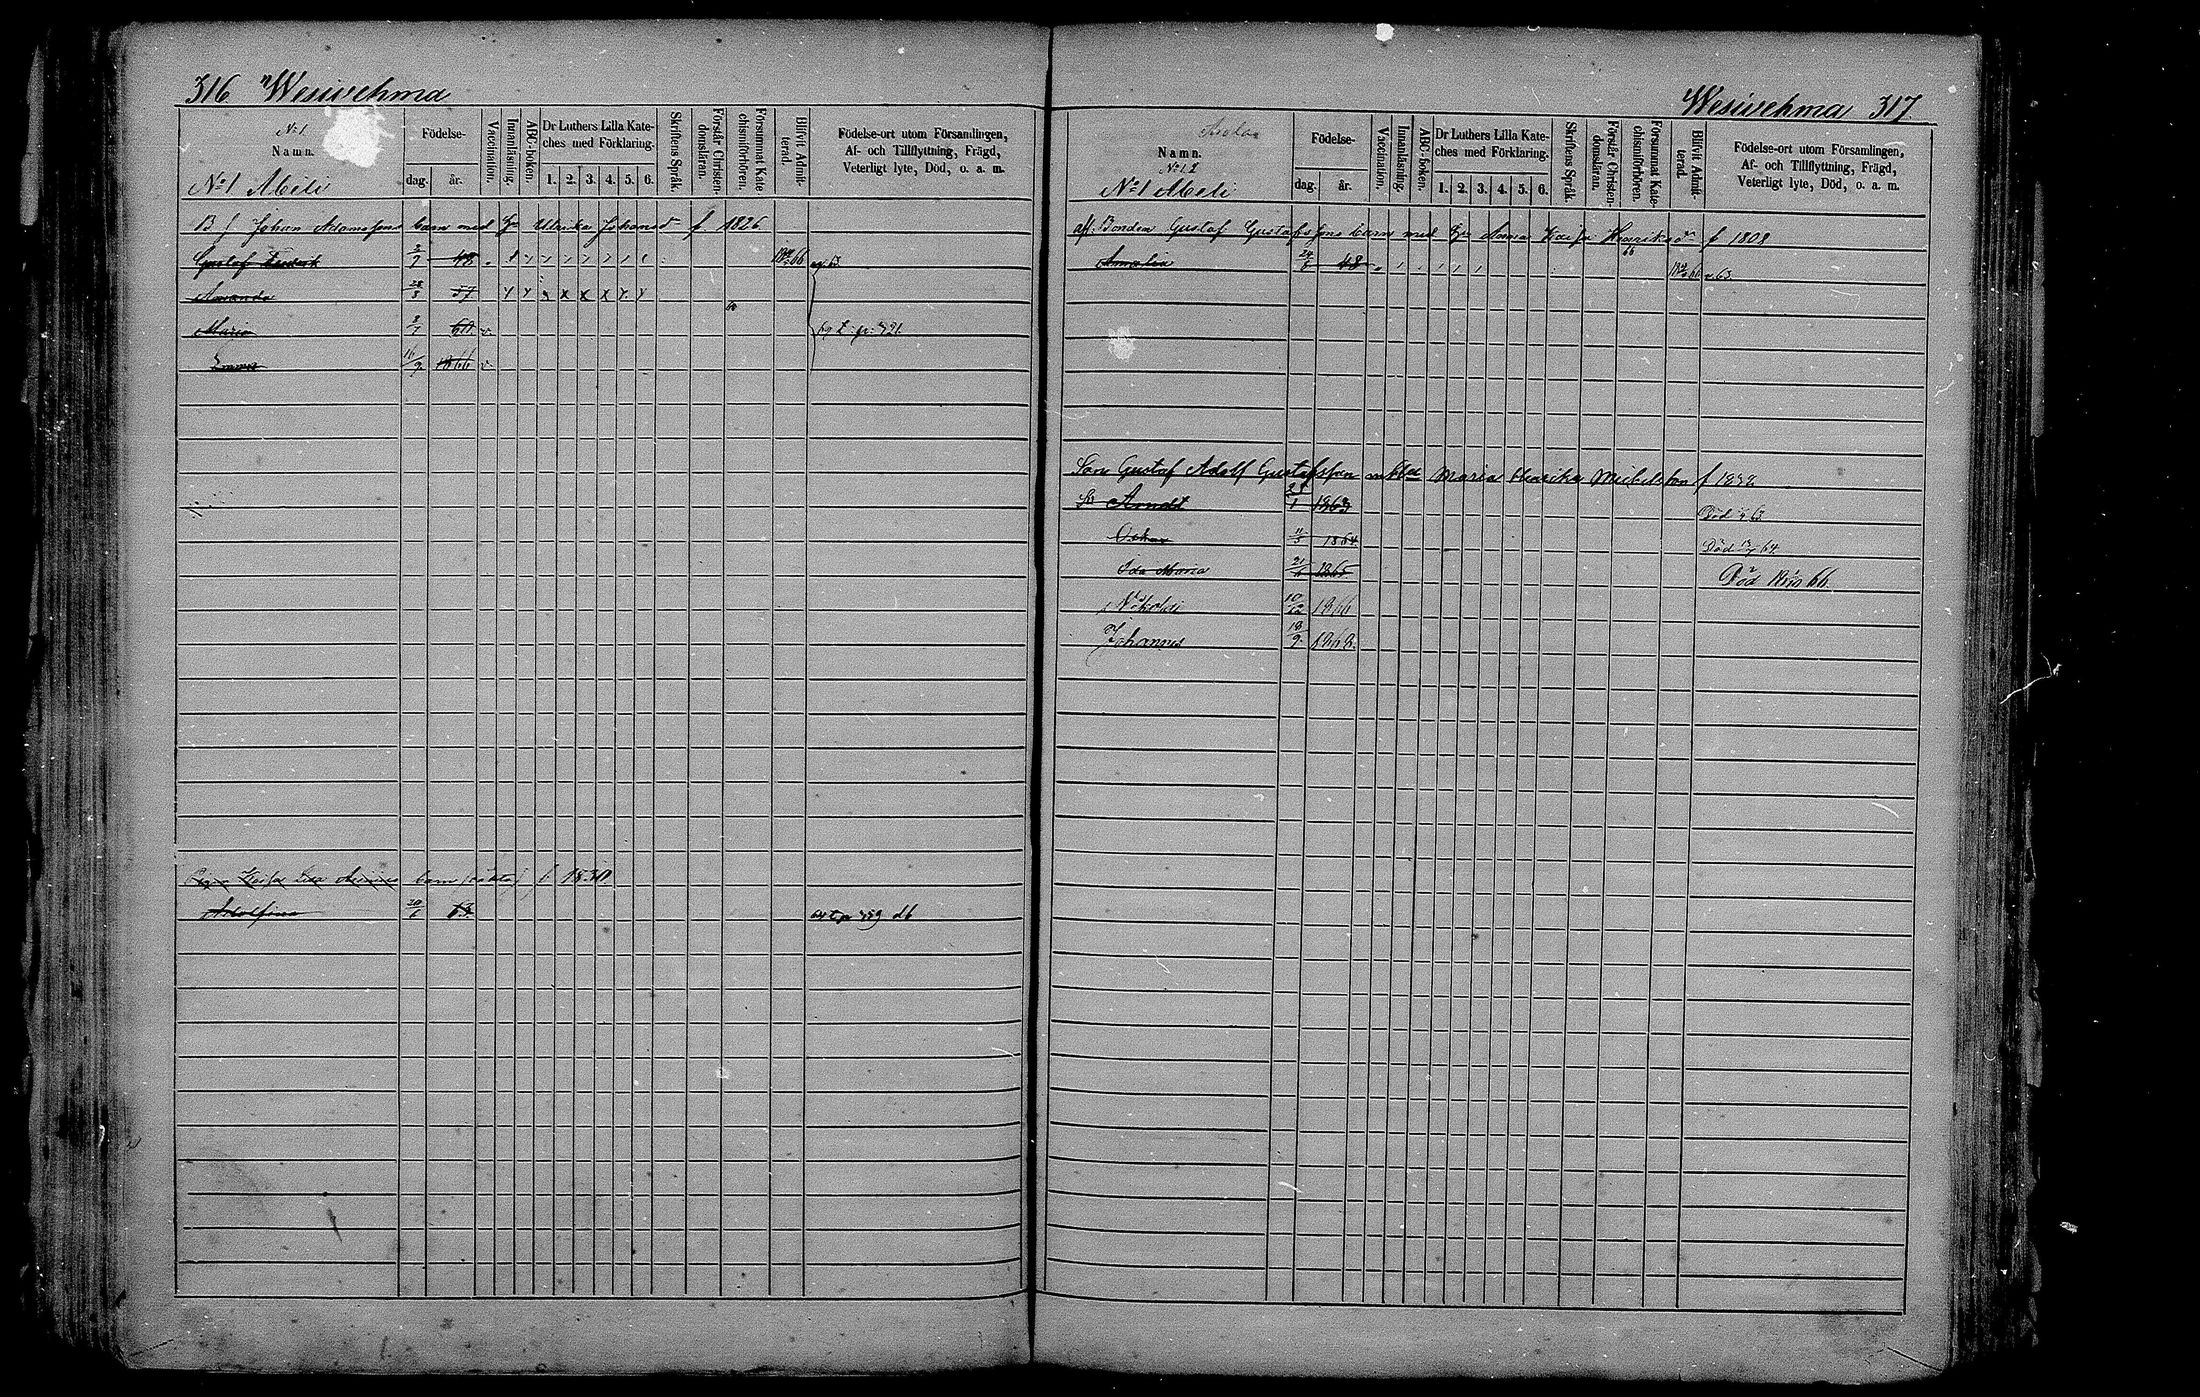 316 Wesivehma
No 1.
Namn.
Födelse-
dag. år.
Vaccination.
Innanläsning.
ABC-boken.
Dr Luthers Lilla Kate-
ches med Förklaring.
1. 2. 3. 4. 5. 6.
Skriftens Språk.
Förstår Christen-
domsläran.
Försummat Kate-
chismiförhören.
Blifvit Admit-
terad.
Födelse-ort utom Församlingen,
Af- och Tillflyttning, Frägd,
Veterligt lyte, Död, o. a. m.
No 1 Abeli
B f Johan Adamssons barn med Hu Ulrika Johansdr f 1826
Gustaf 2/7 48
Amanda 28/8 57
Maria 2/7 60 v.
Emma 16/9 1866 v.
Kaisa Lisa barn f. 1830.
Adolfina 20/6 63
Wesivehma 317
Namn.
Födelse-
dag. år.
Vaccination.
Innanläsning.
ABC-boken.
Dr Luthers Lilla Kate-
ches med Förklaring.
1. 2. 3. 4. 5. 6.
Skriftens Språk.
Förstår Christen-
domsläran.
Försummat Kate-
chismiförhören.
Blifvit Admit-
terad.
Födelse-ort utom Församlingen,
Af- och Tillflyttning, Frägd,
Veterligt lyte, Död, o. a. m.
No 1 Abeli
afl. Bonden Gustaf Gustafssons barn med Hu Anna Kaisa Henriksdr f 1808
Amalia 24/6 48
Son Gustaf Adolf Gustafsson m Maria Ulrika Michelsson f 1832
Arndt 1863 Död 63
Oskar 1864 Död 64
Ida Maria 1865 Död 66
Nikolai 10/12 1866
Johannes 18/9 1868.